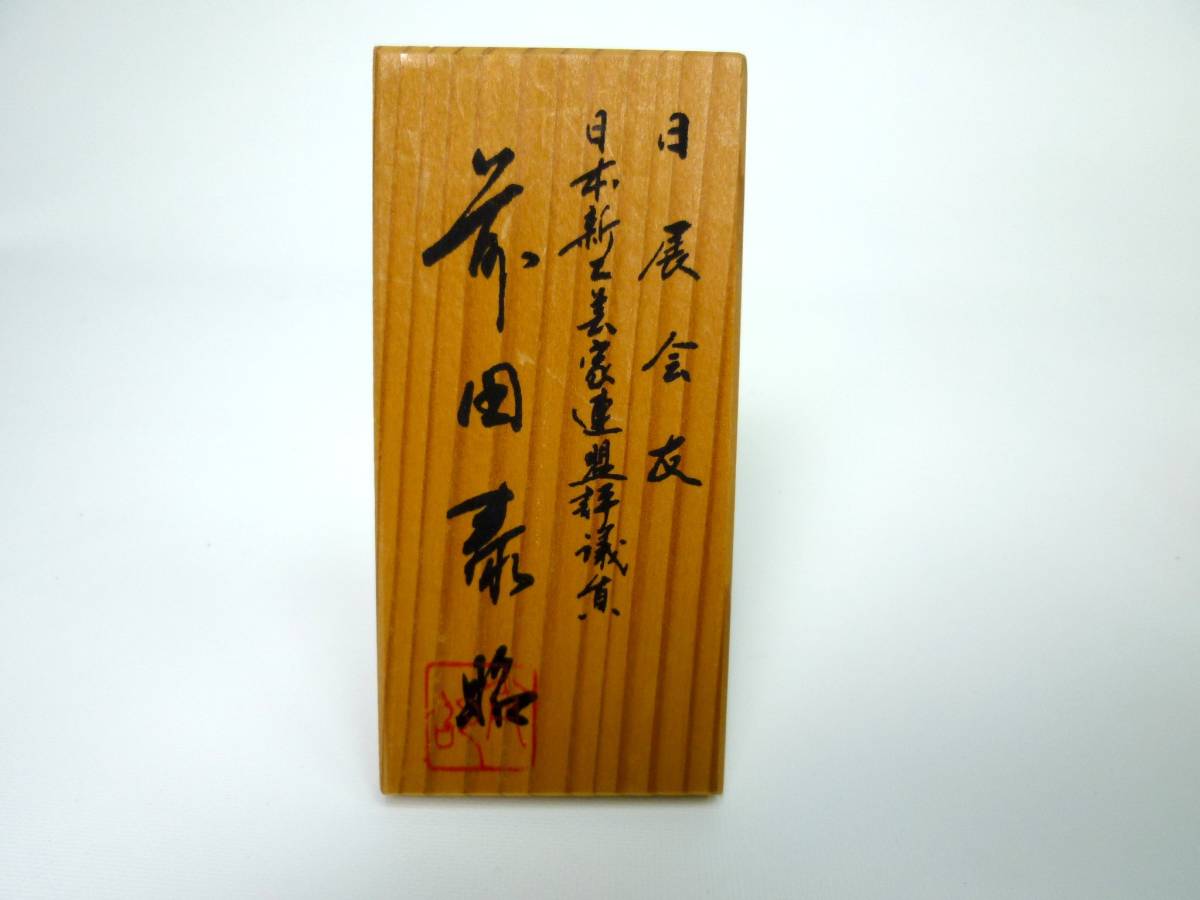 日展会友
日本新工芸家連盟評議員
前田泰昭